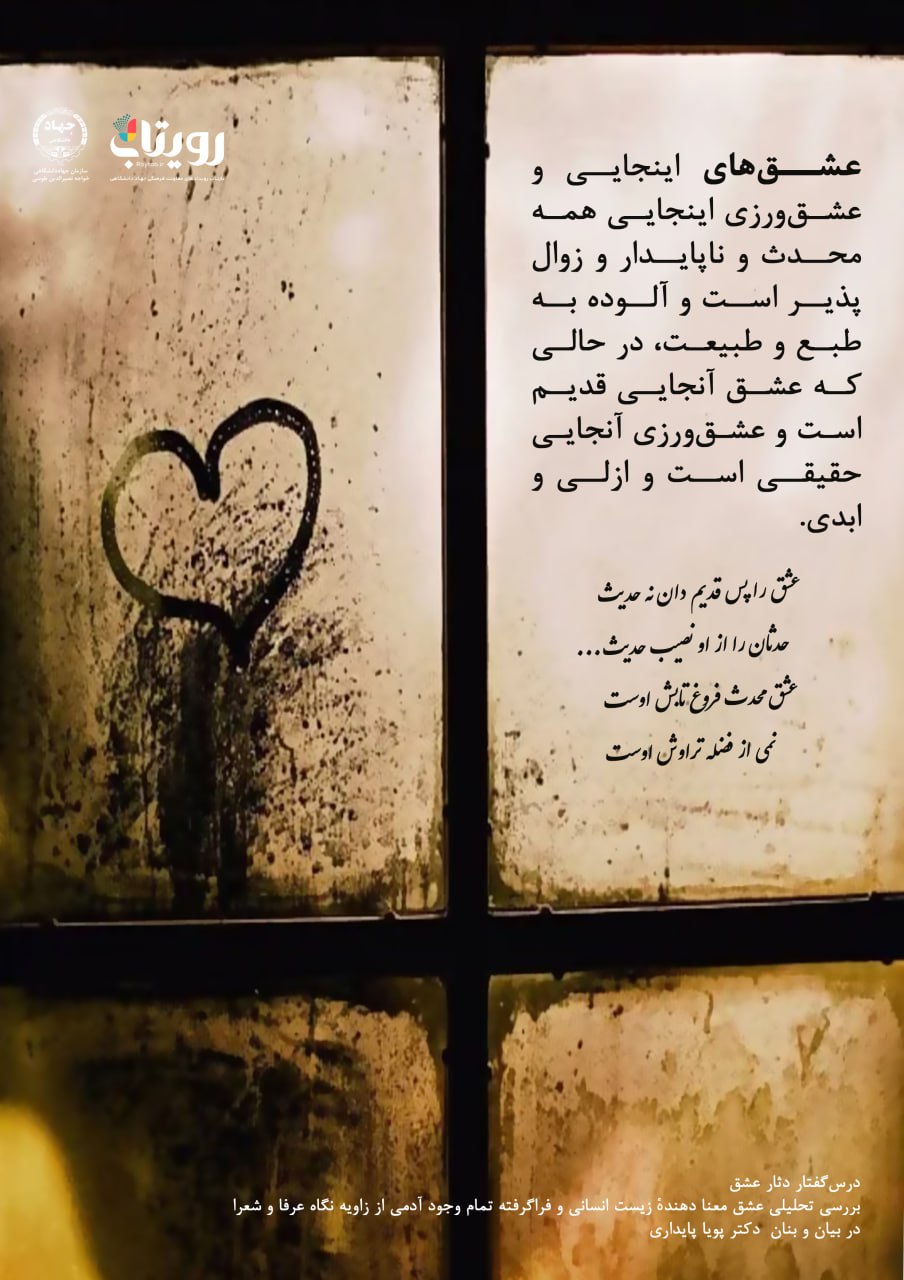 جهاد
رویتاب
Roytab.ir
بازتاب رویدادهای معاونت فرهنگی جهاد دانشگاهی
سازمان جهاددانشگاهی
خواجه نصیرالدین طوسی
عشق‌های اینجایی و
عشق‌ورزی اینجایی همه
محدث و ناپایدار و زوال
پذیر است و آلوده به
طبع و طبیعت، در حالی
که عشق آنجایی قدیم
است و عشق‌ورزی آنجایی
حقیقی است و ازلی و
ابدی.
عشق را پس قدیم دان نه حدیث
حدثان را از او نصیب حدیث...
عشق محدث فروغ تابش اوست
نمی از فضله تراوش اوست
درس‌گفتار دثار عشق
بررسی تحلیلی عشق معنا دهندهٔ زیست انسانی و فراگرفته تمام وجود آدمی از زاویه نگاه عرفا و شعرا
در بیان و بنان دکتر پویا پایداری